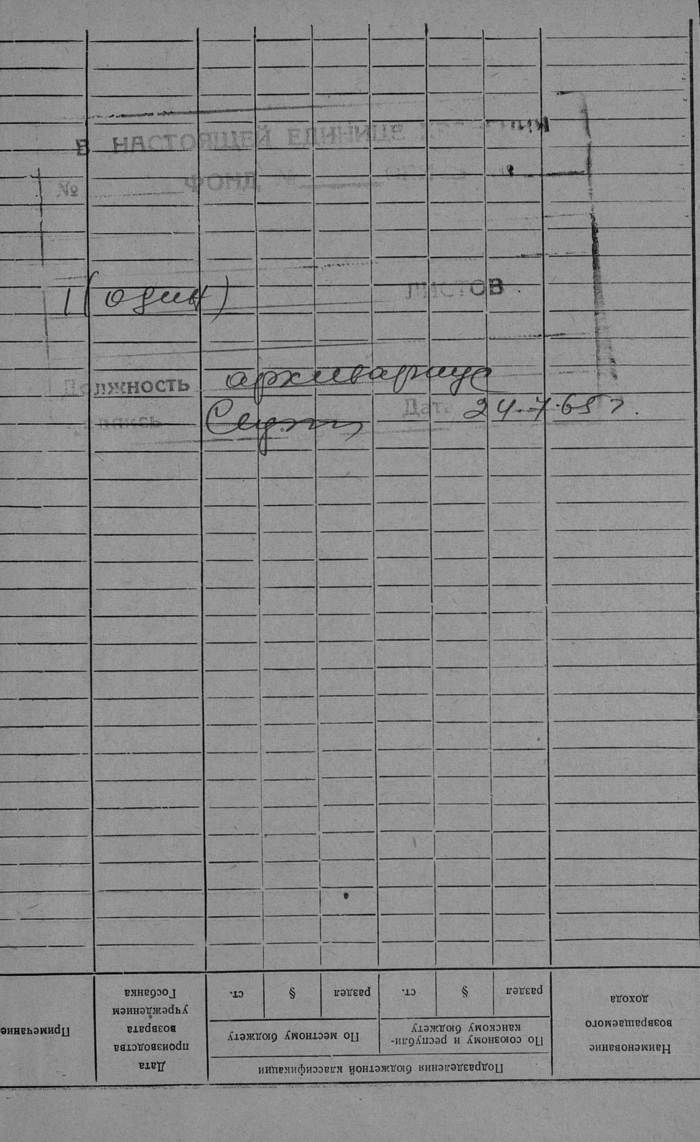 В НАСТОЯЩЕЙ ЕДИНИЦЕ
№ ФОНД №
1 (один) ЛИСТОВ.
Должность архивариус
Дата 24.7.65 г.
раздел § ст. раздел § ст.
Наименование возвращаемого дохода
По союзному и республи-
канскому бюджету
По местному бюджету
Подразделения бюджетной классификации
Дата
производства
возврата
учреждением
Госбанка
Примечание